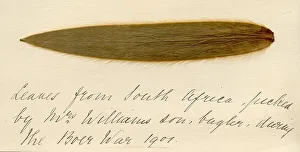 Leaves from South Africa, picked
by Mrs Williams son, bugler, during
the Boer War 1901.